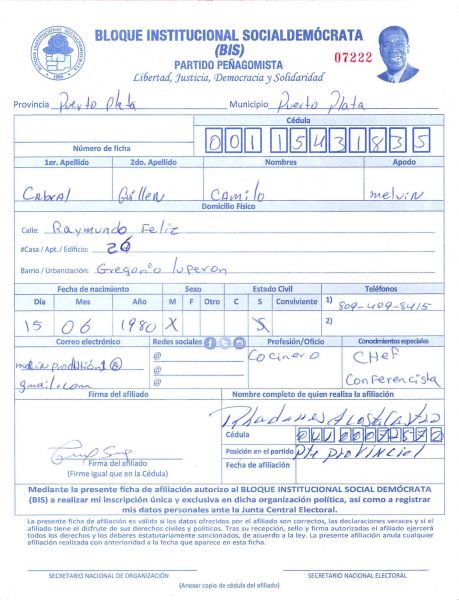 BLOQUE INSTITUCIONAL SOCIALDEMÓCRATA
(BIS)
07222
PARTIDO PEÑAGOMISTA
Libertad, Justicia, Democracia y Solidaridad
Provincia Puerto Plata Municipio Puerto Plata
Cédula
Número de ficha 001 1543183 5
1er. Apellido 2do. Apellido Nombres Apodo
Cabral Guillen Camilo melvin
Domicilio Físico
Calle: Raymundo Feliz
#Casa / Apt. / Edificio: 26
Barrio / Urbanización: Gregorio luperon
Fecha de nacimiento Sexo Estado Civil Teléfonos
Día Mes Año M F Otro C S Conviviente 1) 809-409-8415
15 06 1980 X S 2)
Correo electrónico Redes sociales Profesión/Oficio Conocimientos especiales
@ Cocinero CHef
@
gmail.com @ Conferencista
Firma del afiliado Nombre completo de quien realiza la afiliación
Cédula
Posición en el partido Pte provincial
Firma del afiliado Fecha de afiliación
(Firme igual que en la Cédula)
Mediante la presente ficha de afiliación autorizo al BLOQUE INSTITUCIONAL SOCIAL DEMÓCRATA
(BIS) a realizar mi inscripción única y exclusiva en dicha organización política, así como a registrar
mis datos personales ante la Junta Central Electoral.
La presente ficha de afiliación es válida si los datos ofrecidos por el afiliado son correctos, las declaraciones veraces y si el
afiliado tiene el disfrute de sus derechos civiles y políticos. Tras su recepción, sello y firma autorizadas el afiliado ejercerá
todos los derechos y los deberes estatutariamente sancionados, de acuerdo a la ley. La presente afiliación anula cualquier
afiliación realizada con anterioridad a la fecha que aparece en esta ficha.
SECRETARIO NACIONAL DE ORGANIZACIÓN SECRETARIO NACIONAL ELECTORAL
(Anexar copia de cédula del afiliado)